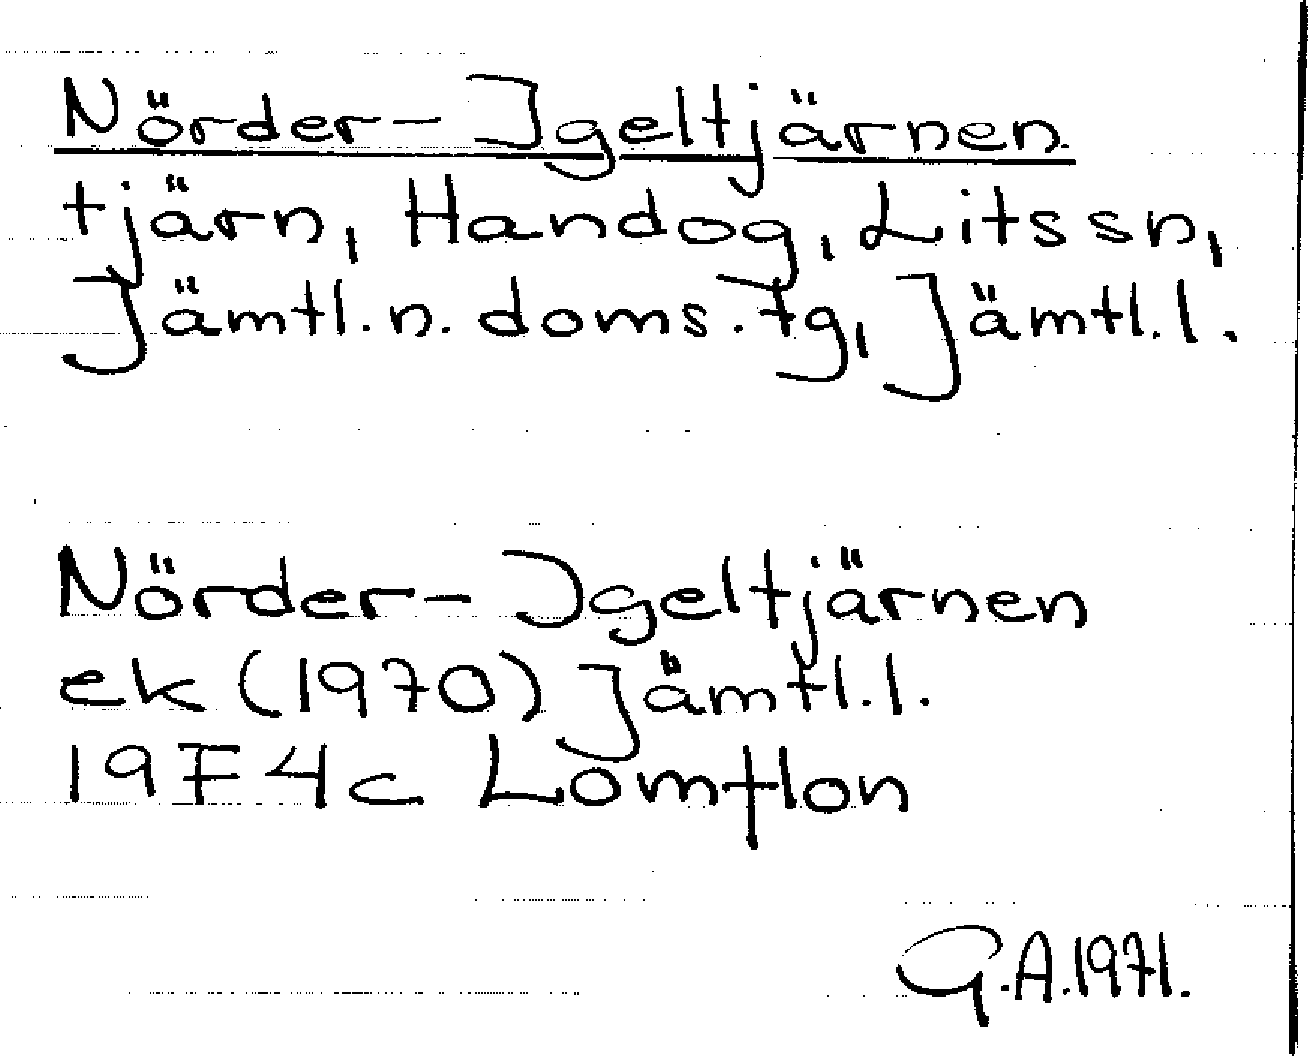 Nörder-Igeltjärnen
tjärn, Handog, Lits sn,
Jämtl. n. doms. tg, Jämtl. l.
Nörder-Igeltjärnen
ek (1970) Jämtl. l.
19F4c Lomtlon
G.A. 1971.